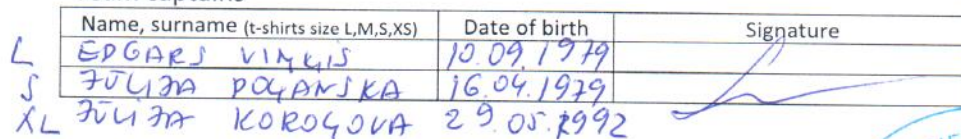 Name, surname (t-shirts size L,M,S,XS) Date of birth Signature
L EDGARS VINĶIS 10.09.1979
S JŪLIJA POĻANSKA 16.04.1979
XL JŪLIJA KOROĻOVA 29.05.1992